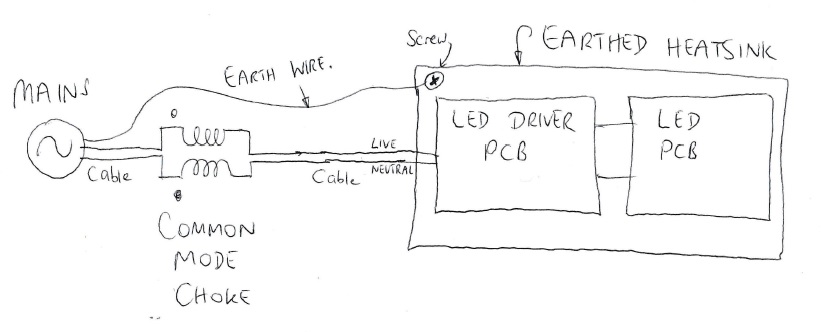 Screw
EARTHED HEATSINK
EARTH WIRE.
MAINS
LED DRIVER
PCB
LED
PCB
LIVE
NEUTRAL
Cable
Cable
COMMON
MODE
CHOKE